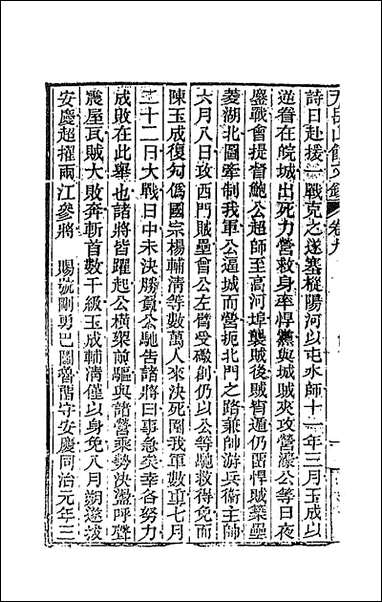 天岳山館文鈔 卷九
詩日赴援一戰克之遂塞樅陽河以屯水師十一年三月玉成以
逆眷在皖城出死力營救身率悍黨與城賊夾攻營濠公等日夜
鏖戰會提督鮑公超師至高河埠襲賊後賊宵遁仍留悍賊築壘
菱湖北圖牽制我軍公逼城而營扼北門之路兼帥游兵衞主帥
六月八日攻西門賊壘曾公左臂受礮創仍以公等馳救得免而
陳玉成復句僞國宗楊輔淸等數萬人來決死鬭我軍數重七月
二十二日大戰日中未決勝負公馳告諸將曰事急矣幸各努力
成敗在此舉也諸將皆躍起公橫槊前驅與諸營乘勢決盪呼聲
震屋瓦賊大敗奔斬首數千級玉成輔淸僅以身免八月朔遂拔
安慶超擢兩江參將 賜號剛勇巴圖魯留守安慶同治元年三